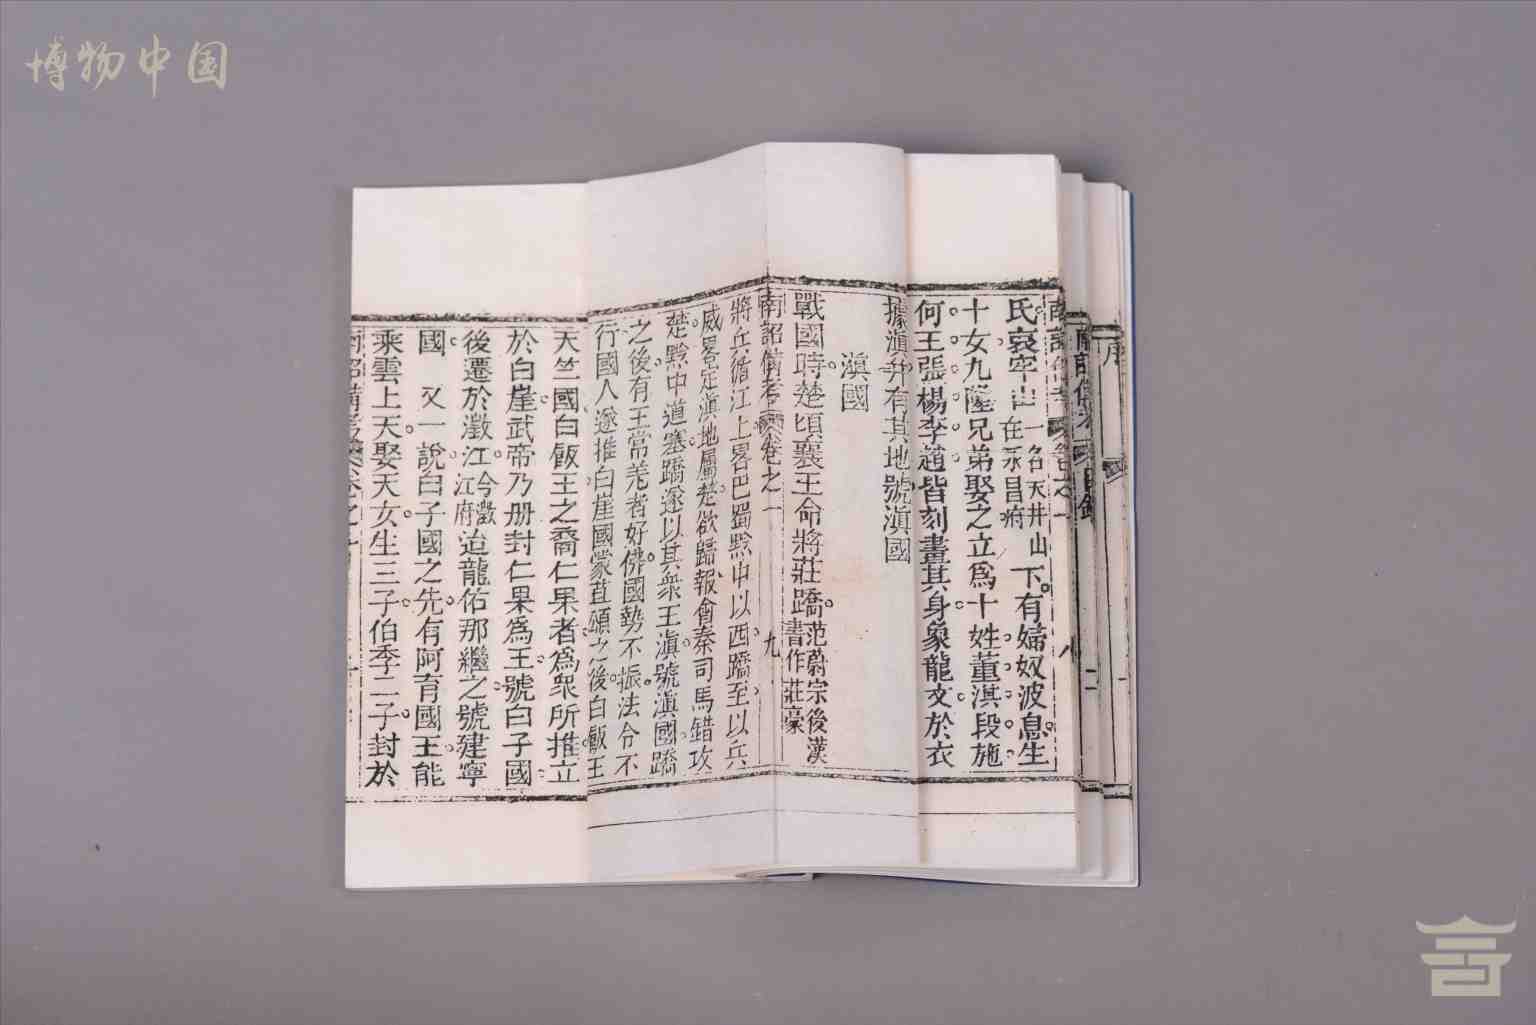 博物中国
序
一
南詔備考 目錄
二
南詔備考 卷之一
八
氏哀牢山一名天井山在永昌府下有婦奴波息生
十女九隆兄弟娶之立爲十姓董淇段施
何王張楊李趙皆刻畫其身象龍文於衣
據滇并有其地號滇國
滇國
戰國時楚頃襄王命將莊蹻范蔚宗後漢書作莊豪
南詔備考 卷之一 九
將兵循江上畧巴蜀黔中以西蹻至以兵
威畧定滇地屬楚欲歸報會秦司馬錯攻
楚黔中道塞蹻遂以其眾王滇號滇國蹻
之後有王常羌者好佛國勢不振法令不
行國人遂推白崖國蒙苴頌之後白飯王
天竺國白飯王之裔仁果者爲眾所推立
於白崖武帝乃册封仁果爲王號白子國
後遷於澂江今澂江府迨龍佑那繼之號建寧
國 又一說白子國之先有阿育國王能
乘雲上天娶天女生三子伯季二子封於
南詔備考 卷之一